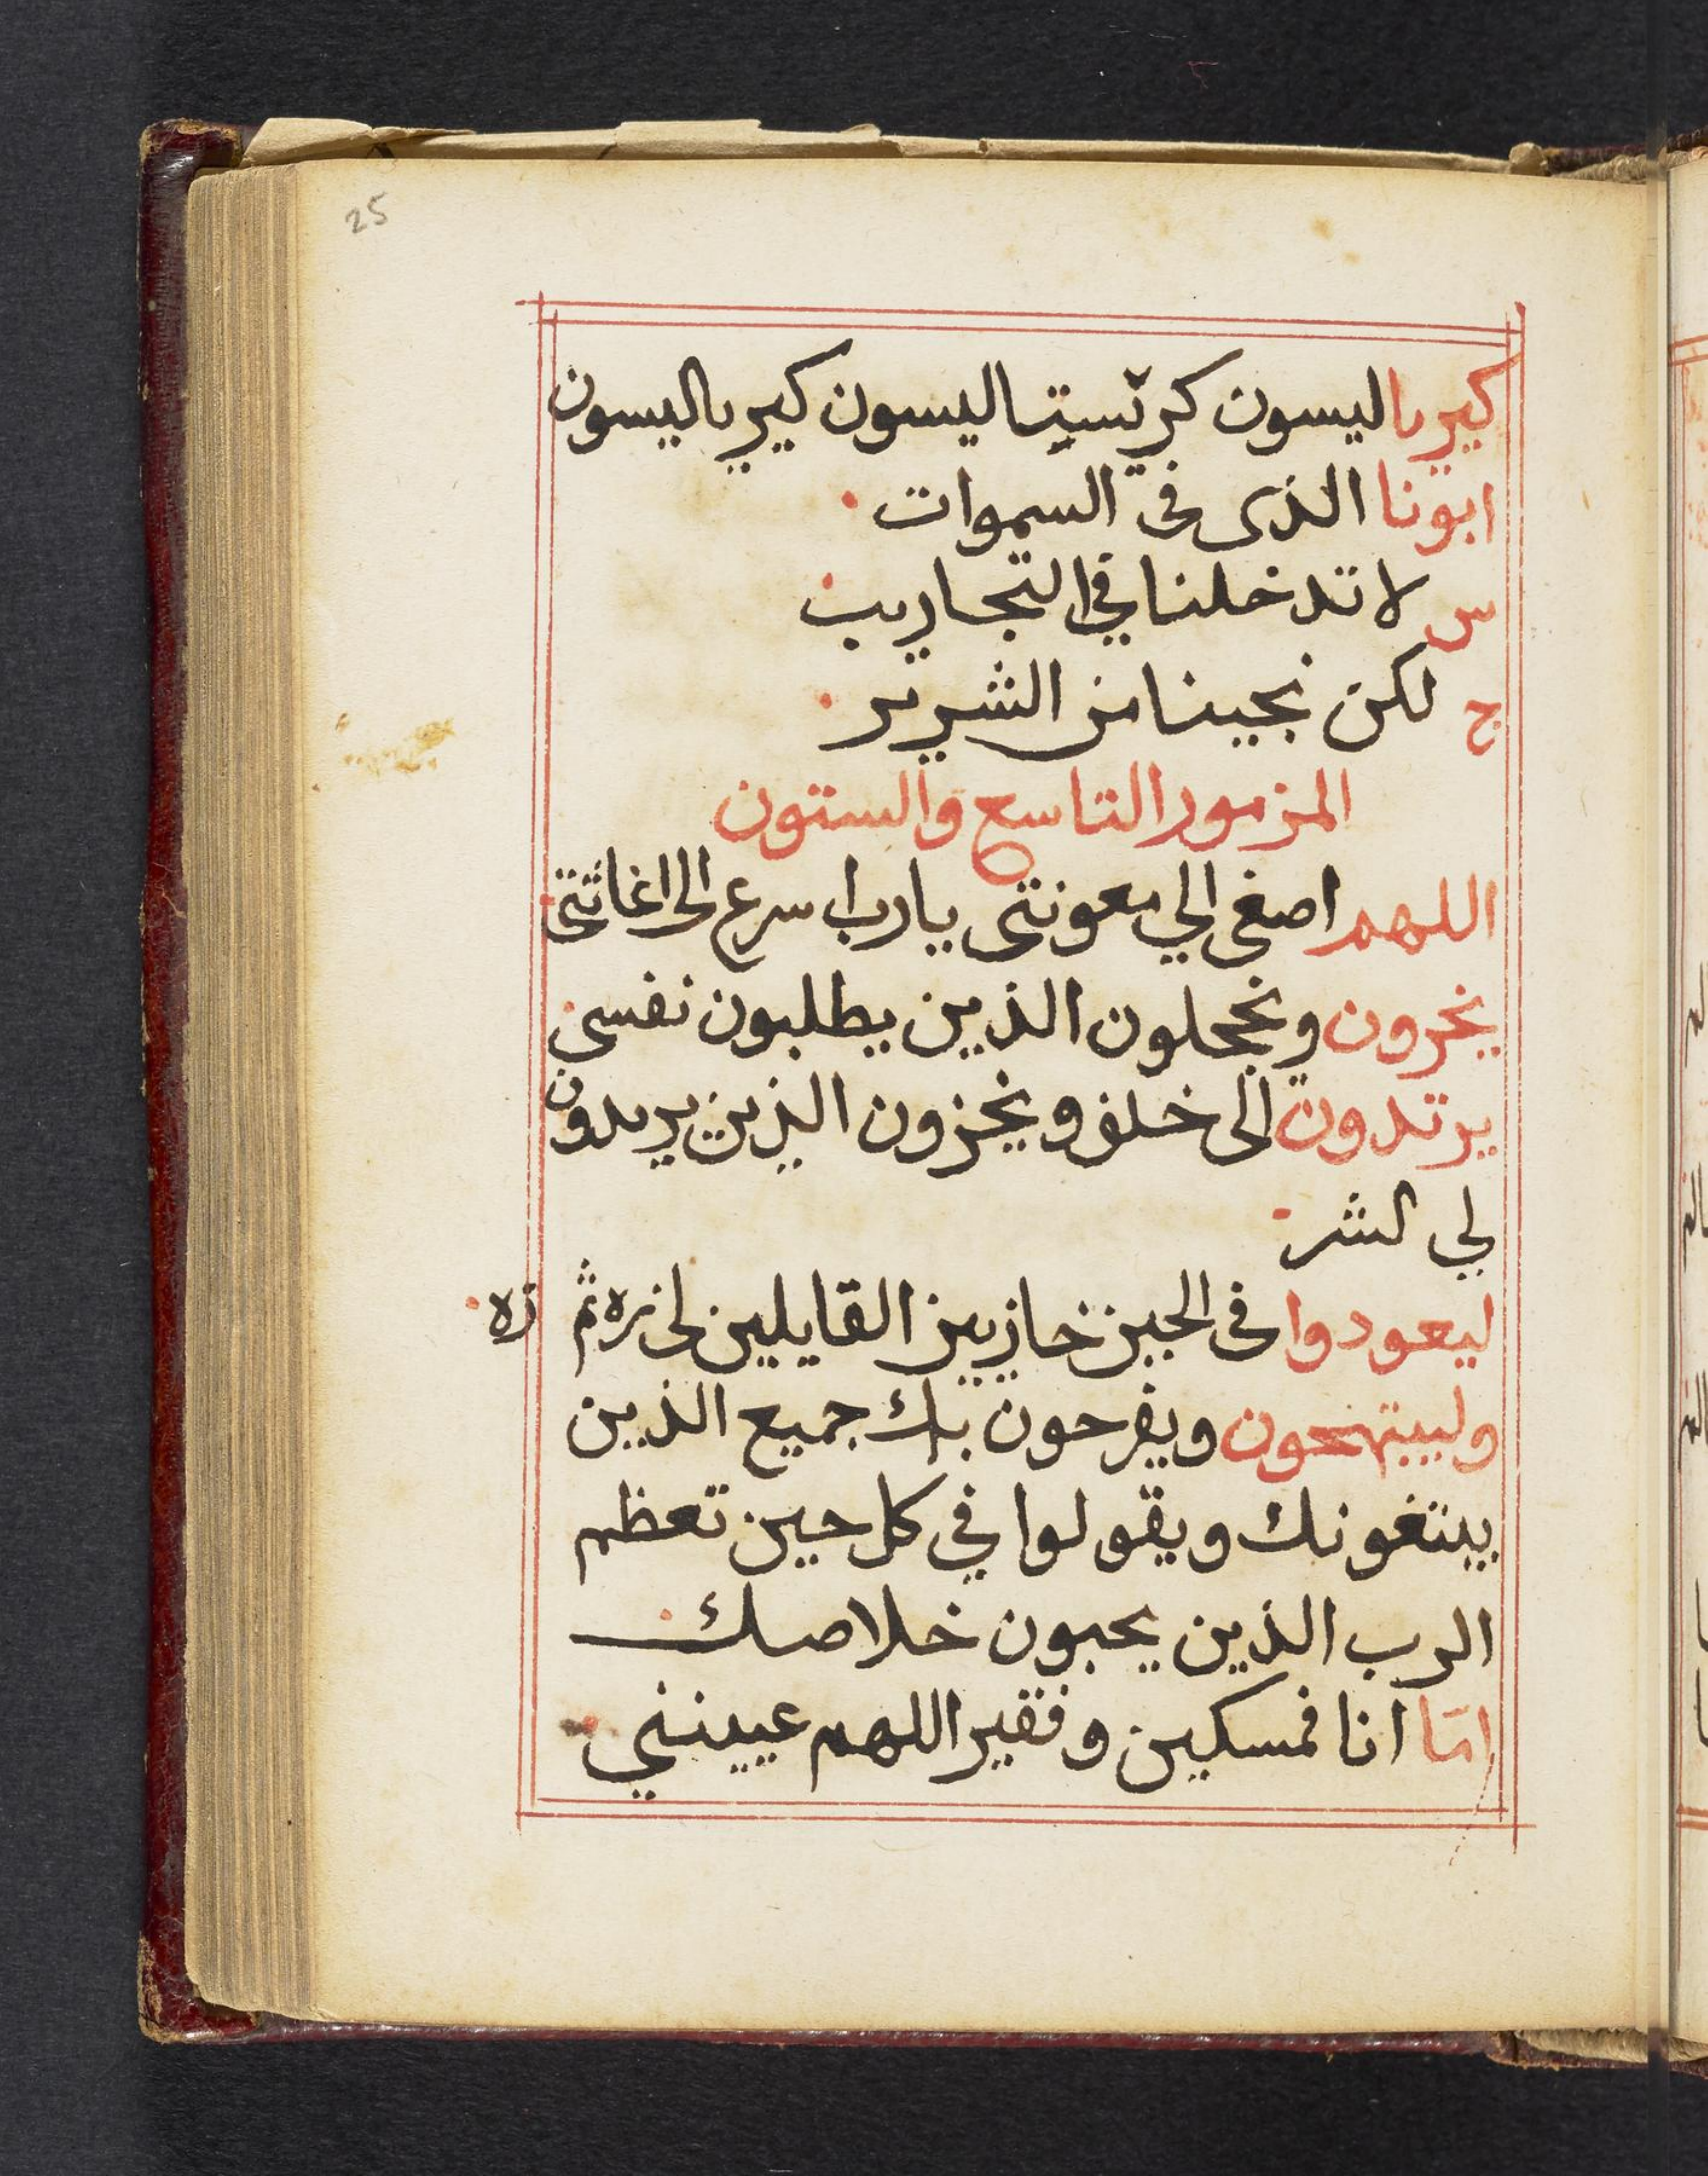 25
كيريا ليسون كريستا ليسون كيريا ليسون
ابونا الذى فى السموات
س لا تدخلنا في التجاريب
ج لكن نجينا من الشرير
المزمور التاسع والستون
اللهم اصغى الي معونتى يارب اسرع الى اغاثتى
يخزون ويخجلون الذين يطلبون نفسي
يرتدون الى خلف ويخزون الذين يريدون
لي الشر
ليعودوا فى الحين خازيين القايلين لى زه ثم زه
وليبتهجون ويفرحون بك جميع الذين
يبتغونك ويقولوا في كل حين تعظم
الرب الذين يحبون خلاصك
امّا انا فمسكين وفقير اللهم عيينني